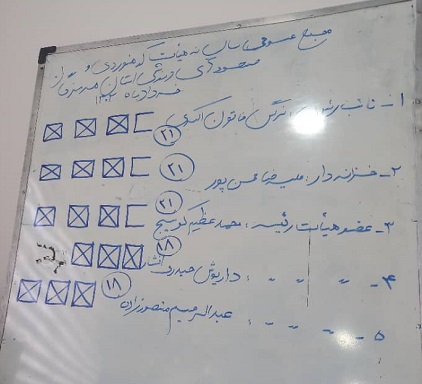 مجمع عمومی سالیانه هیئت کوهنوردی و
صعودهای ورزشی استان هرمزگان
خردادماه ۱۴۰۲
۱- نائب رئیس: نرگس خاتون
۲۱
۲- خزانه دار: علیرضا محسن پور
۲۱
۳- عضو هیأت رئیسه: محمد عظیم
۲۱
۴- " " " : داریوش حیدری
۱۸
۵- " " " : عبدالرحیم منصورزاده
۱۸